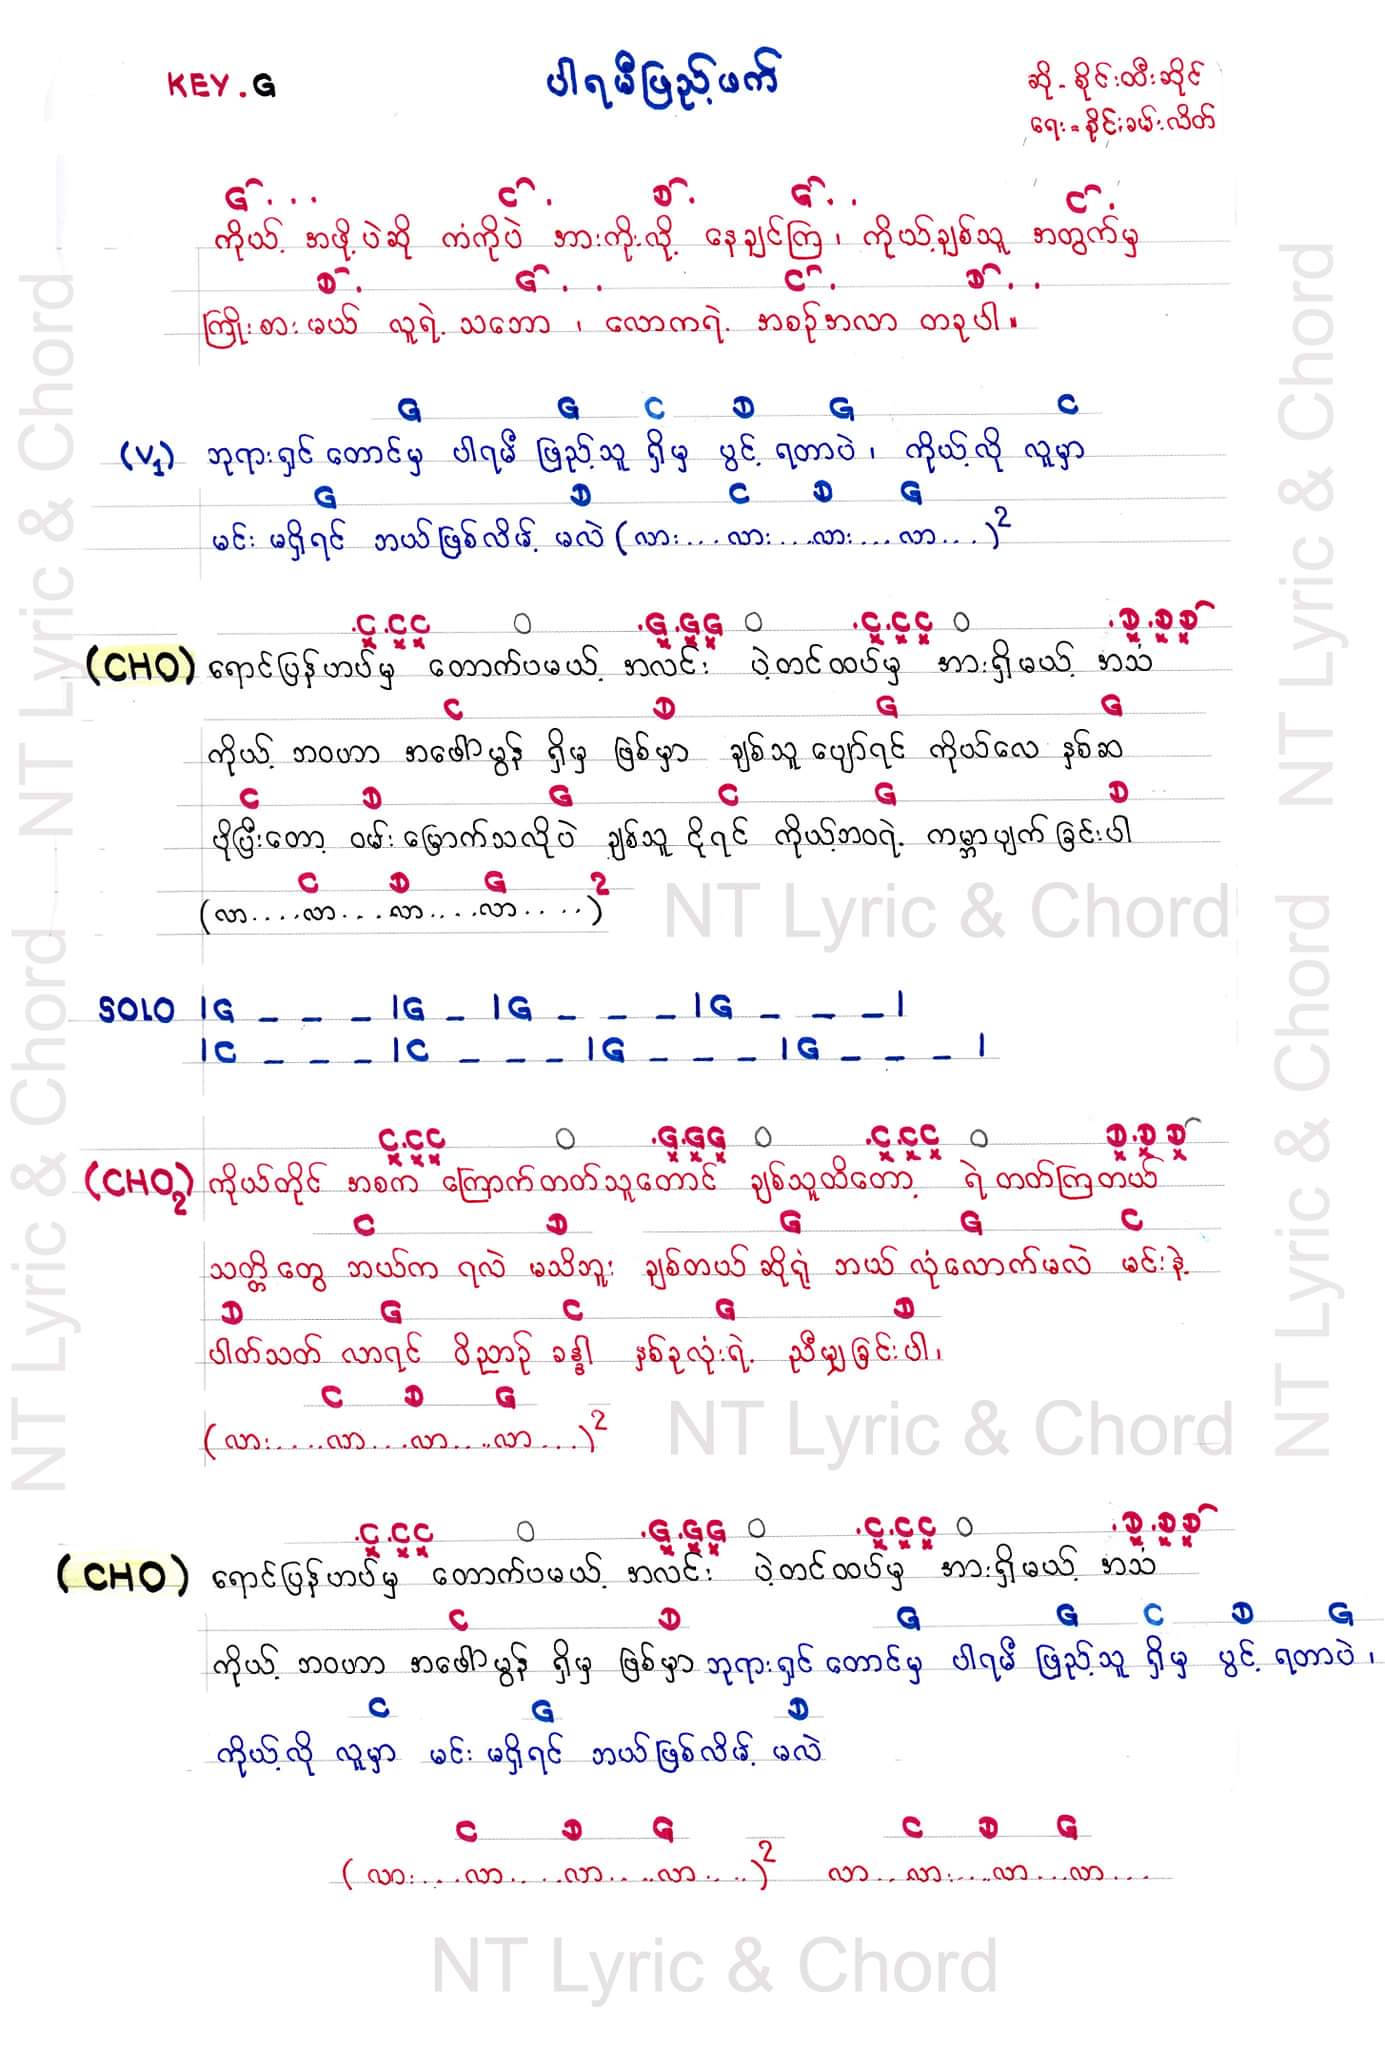 KEY.G
ပါရမီဖြည့်ဖက်
ဆို - စိုင်းထီးဆိုင်
ရေး = စိုင်းခမ်းလိတ်
G... C. D. G.. C.
ကိုယ့် အဖို့ပဲဆို ကံကိုပဲ အားကိုးလို့ နေချင်ကြ၊ ကိုယ့်ချစ်သူ အတွက်မှ
D. G.. C. D..
ကြိုးစားမယ် လူရဲ့သဘော ၊ လောကရဲ့ အစဉ်အလာ တခုပါ။
G G C D G C
(V1) ဘုရားရှင်တောင်မှ ပါရမီ ဖြည့်သူ ရှိမှ ပွင့် ရတာပဲ၊ ကိုယ့်လို လူမှာ
G D C D G
မင်း မရှိရင် ဘယ်ဖြစ်လိမ့် မလဲ (လား...လား...လား...လာ...)2
.C.CC O .G.GG O .C.CC O .D.DD
(CHO) ရောင်ပြန်ဟပ်မှ တောက်ပမယ့် အလင်း ပဲ့တင်ထပ်မှ အားရှိမယ့် အသံ
C D G G
ကိုယ့် ဘဝဟာ အဖေါ်မွန် ရှိမှ ဖြစ်မှာ ချစ်သူပျော်ရင် ကိုယ်လေ နှစ်ဆ
C D G C G D
ပိုပြီးတော့ ဝမ်းမြောက်သလိုပဲ ချစ်သူ ငိုရင် ကိုယ့်ဘဝရဲ့ ကမ္ဘာပျက်ခြင်းပါ
C D G 2
(လာ....လာ...လာ....လာ.....)
NT Lyric & Chord
SOLO |G _ _ _ |G _ |G _ _ _ |G _ _ _ |
|C _ _ _ |C _ _ _ |G _ _ _ |G _ _ _ |
C.CC O .G.GG O .C.CC O D.D D
(CHO2) ကိုယ်တိုင် အစက ကြောက်တတ်သူတောင် ချစ်သူထိတော့ ရဲတတ်ကြတယ်
C D G G C
သတ္တိတွေ ဘယ်က ရလဲ မသိဘူး ချစ်တယ်ဆိုရုံ ဘယ်လုံလောက်မလဲ မင်းနဲ့
D G C G D
ပါတ်သတ် လာရင် ဝိညာဉ် ခန္ဓါ နှစ်ခုလုံးရဲ့ ညီမျှခြင်းပါ၊
C D G
(လား....လာ...လာ....လာ...)2
NT Lyric & Chord
.C.CC O .G.GG O .C.CC O .D.DD
(CHO) ရောင်ပြန်ဟပ်မှ တောက်ပမယ့် အလင်း ပဲ့တင်ထပ်မှ အားရှိမယ့် အသံ
C D G G C D G
ကိုယ့် ဘဝဟာ အဖေါ်မွန် ရှိမှ ဖြစ်မှာ ဘုရားရှင်တောင်မှ ပါရမီ ဖြည့်သူ ရှိမှ ပွင့် ရတာပဲ၊
C G D
ကိုယ့်လို လူမှာ မင်း မရှိရင် ဘယ်ဖြစ်လိမ့် မလဲ
C D G C D G
(လား....လာ....လာ....လာ....)2 လာ...လား....လာ...လာ...
NT Lyric & Chord
NT Lyric & Chord
NT Lyric & Chord
NT Lyric & Chord
NT Lyric & Chord